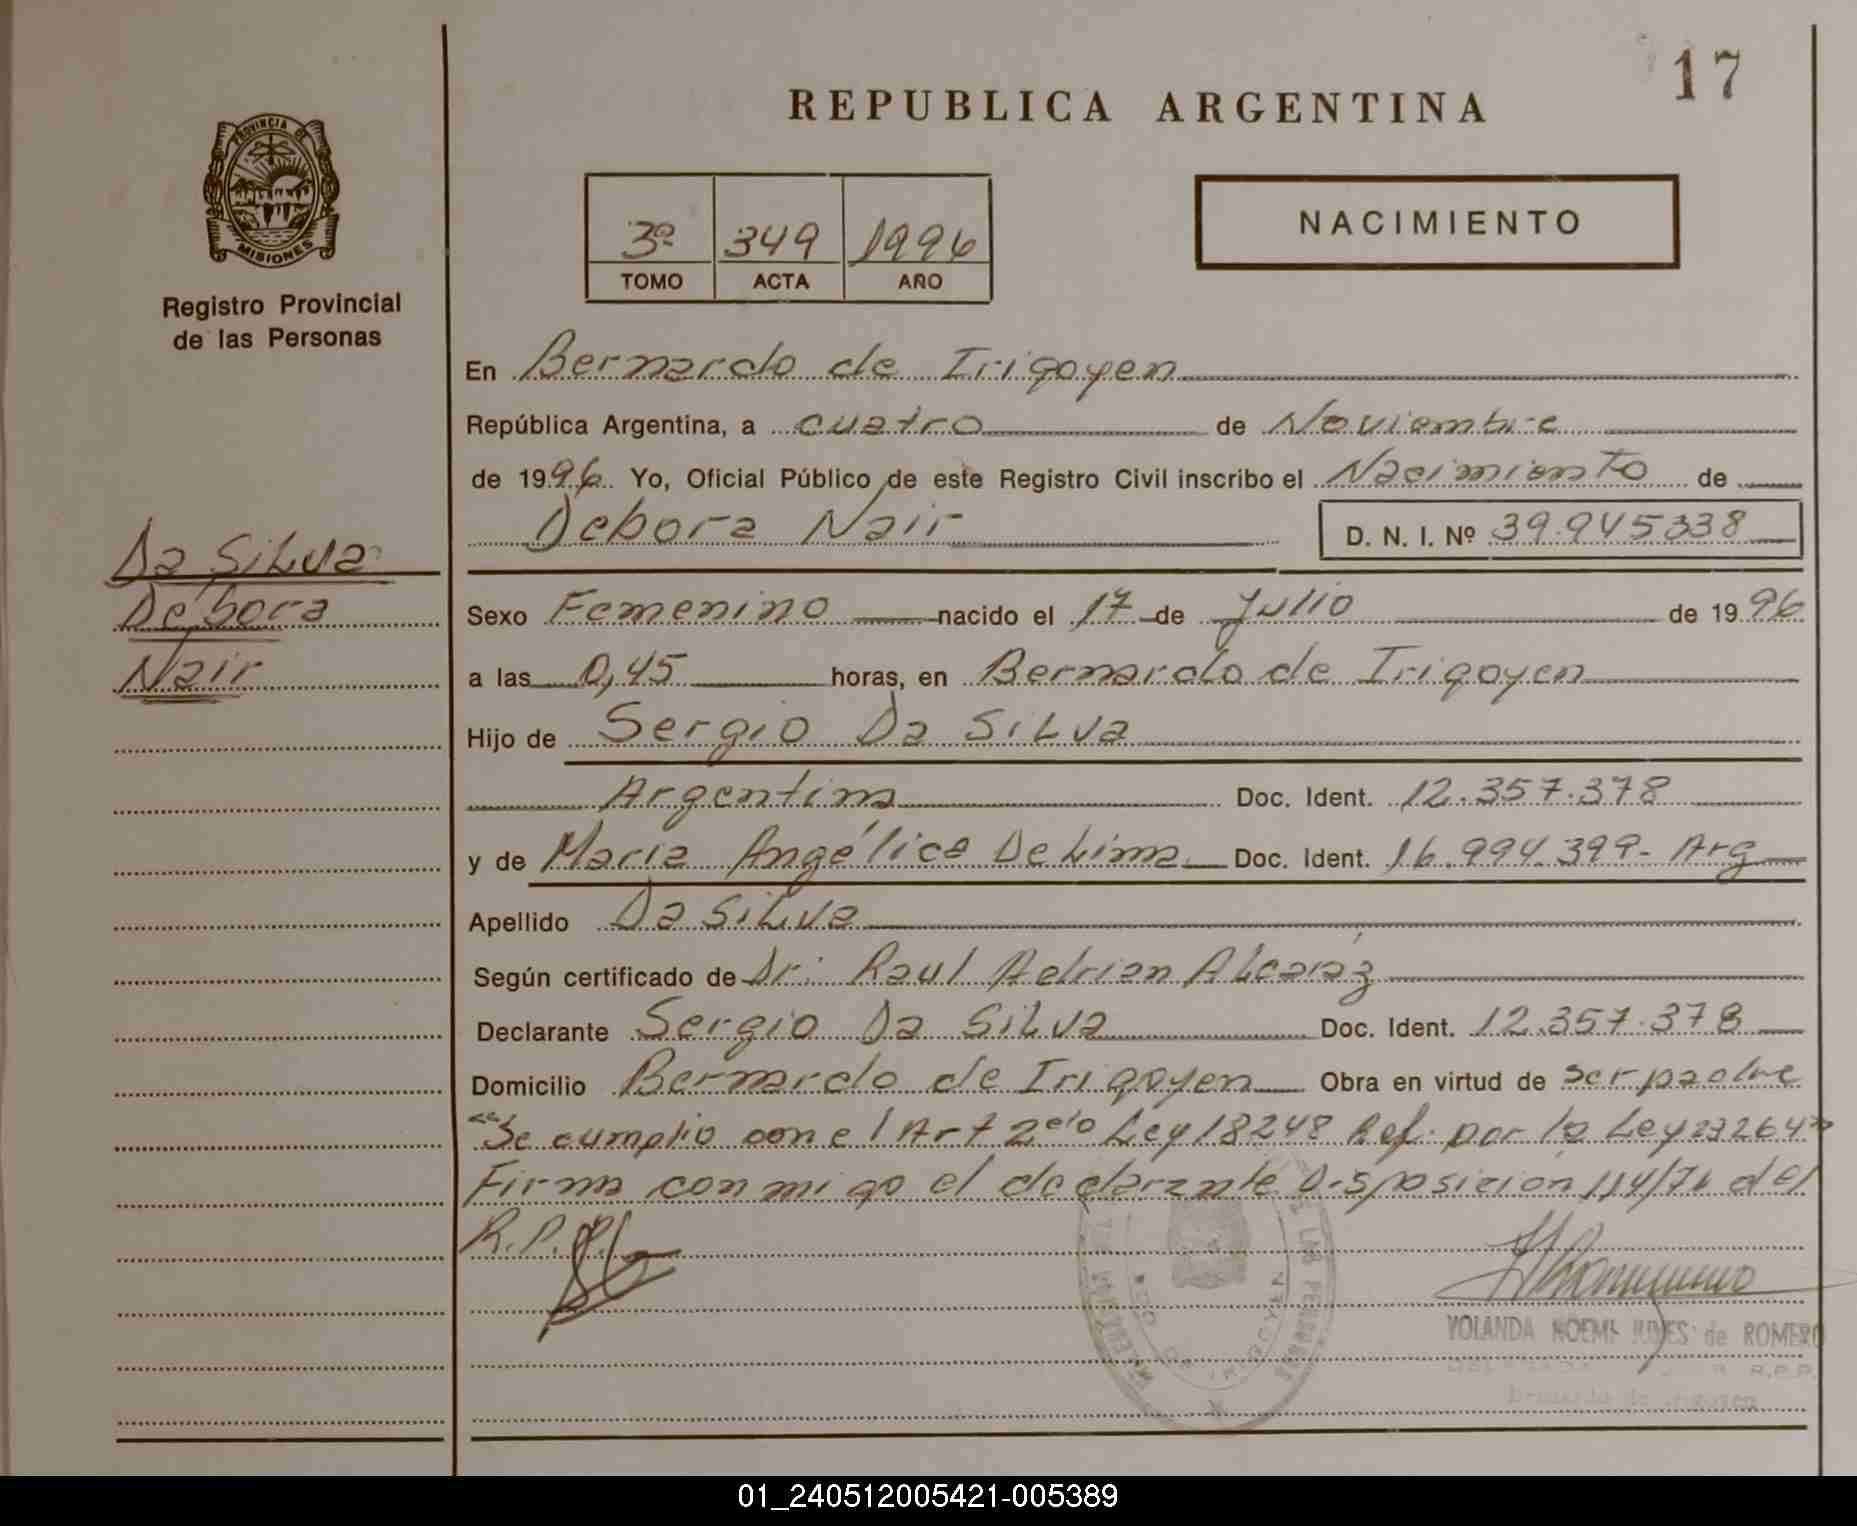 17
REPUBLICA ARGENTINA
PROVINCIA DE
MISIONES
Registro Provincial
de las Personas
3º 349 1996
TOMO ACTA AÑO
NACIMIENTO
En Bernardo de Irigoyen
República Argentina, a cuatro de Noviembre
de 1996. Yo, Oficial Público de este Registro Civil inscribo el Nacimiento de
Debora Nair D. N. I. Nº 39.945338
Da Silva
Débora
Nair
Sexo Femenino nacido el 17 de Julio de 1996
a las 0,45 horas, en Bernardo de Irigoyen
Hijo de Sergio Da Silva
Argentina Doc. Ident. 12.357.378
y de Maria Angélica De Lima Doc. Ident. 16.994.399- Arg
Apellido Da Silva
Según certificado de Dr: Raul Adrian Alcaráz
Declarante Sergio Da Silva Doc. Ident. 12.357.378
Domicilio Bernardo de Irigoyen Obra en virtud de ser padre
"Se cumplio con el Art 2do Ley 18248 Ref. por la Ley 23264"
Firma conmigo el declarante Disposición 114/76 del
R.P.P.
YOLANDA NOEMI de ROMERO
R.P.P.
01_240512005421-005389